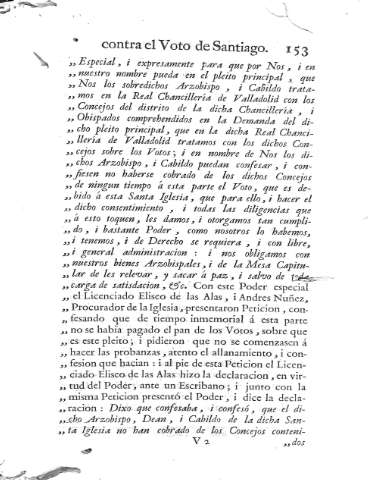 contra el Voto de Santiago. 153
,, Especial, i expresamente para que por Nos, i en
,, nuestro nombre pueda en el pleito principal, que
,, Nos los sobredichos Arzobispo, i Cabildo trata-
,, mos en la Real Chancilleria de Valladolid con los
,, Concejos del distrito de la dicha Chancilleria, i
,, Obispados comprehendidos en la Demanda del di-
,, cho pleito principal, que en la dicha Real Chanci-
,, lleria de Valladolid tratamos con los dichos Con-
,, cejos sobre los Votos; i en nombre de Nos los di-
,, chos Arzobispo, i Cabildo puedan confesar, i con-
,, fiesen no haberse cobrado de los dichos Concejos
,, de ningun tiempo à esta parte el Voto, que es de-
,, bido à esta Santa Iglesia, que para ello, i hacer el
,, dicho consentimiento, i todas las diligencias que
,, à esto toquen, les damos, i otorgamos tan cumpli-
,, do, i bastante Poder, como nosotros lo habemos,
,, i tenemos, i de Derecho se requiera, i con libre,
,, i general administracion: i nos obligamos con
,, nuestros bienes Arzobispales, i de la Mesa Capitu-
,, lar de les relevar, y sacar à paz, i salvo de
,, carga de satisdacion, &c. Con este Poder especial
,, el Licenciado Eliseo de las Alas, i Andres Nuñez,
,, Procurador de la Iglesia, presentaron Peticion, con-
,, fesando que de tiempo inmemorial á esta parte
,, no se había pagado el pan de los Votos, sobre que
,, es este pleito; i pidieron que no se comenzasen á
,, hacer las probanzas, atento el allanamiento, i con-
,, fesion que hacian: i al pie de esta Peticion el Licen-
,, ciado Eliseo de las Alas hizo la declaracion, en vir-
,, tud del Poder, ante un Escribano; i junto con la
,, misma Peticion presentó el Poder, i dice la decla-
,, racion: Dixo que confesaba, i confesó, que el di-
,, cho Arzobispo, Dean, i Cabildo de la dicha San-
,, ta Iglesia no han cobrado de los Concejos conteni-
V 2 ,, dos